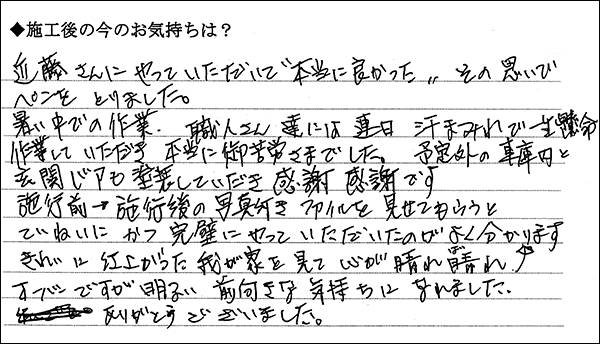 ◆施工後の今のお気持ちは？
近藤さんにやっていただいて〝本当に良かった〟その思いで
ペンをとりました。
暑い中での作業．職人さん達には連日汗まみれで一生懸命
作業していただき本当に御苦労さまでした。予定外の車庫内と
玄関ドアも塗装していだき感謝感謝です
施行前→施行後の写真付きファイルを見せてもらうと
ていねいにかつ完璧にやっていただいたのがよく分かります
きれいに仕上がった我が家を見て心が晴れ晴れ♪
オーバーですが明るい前向きな気持ちになれました．
ありがとうございました。